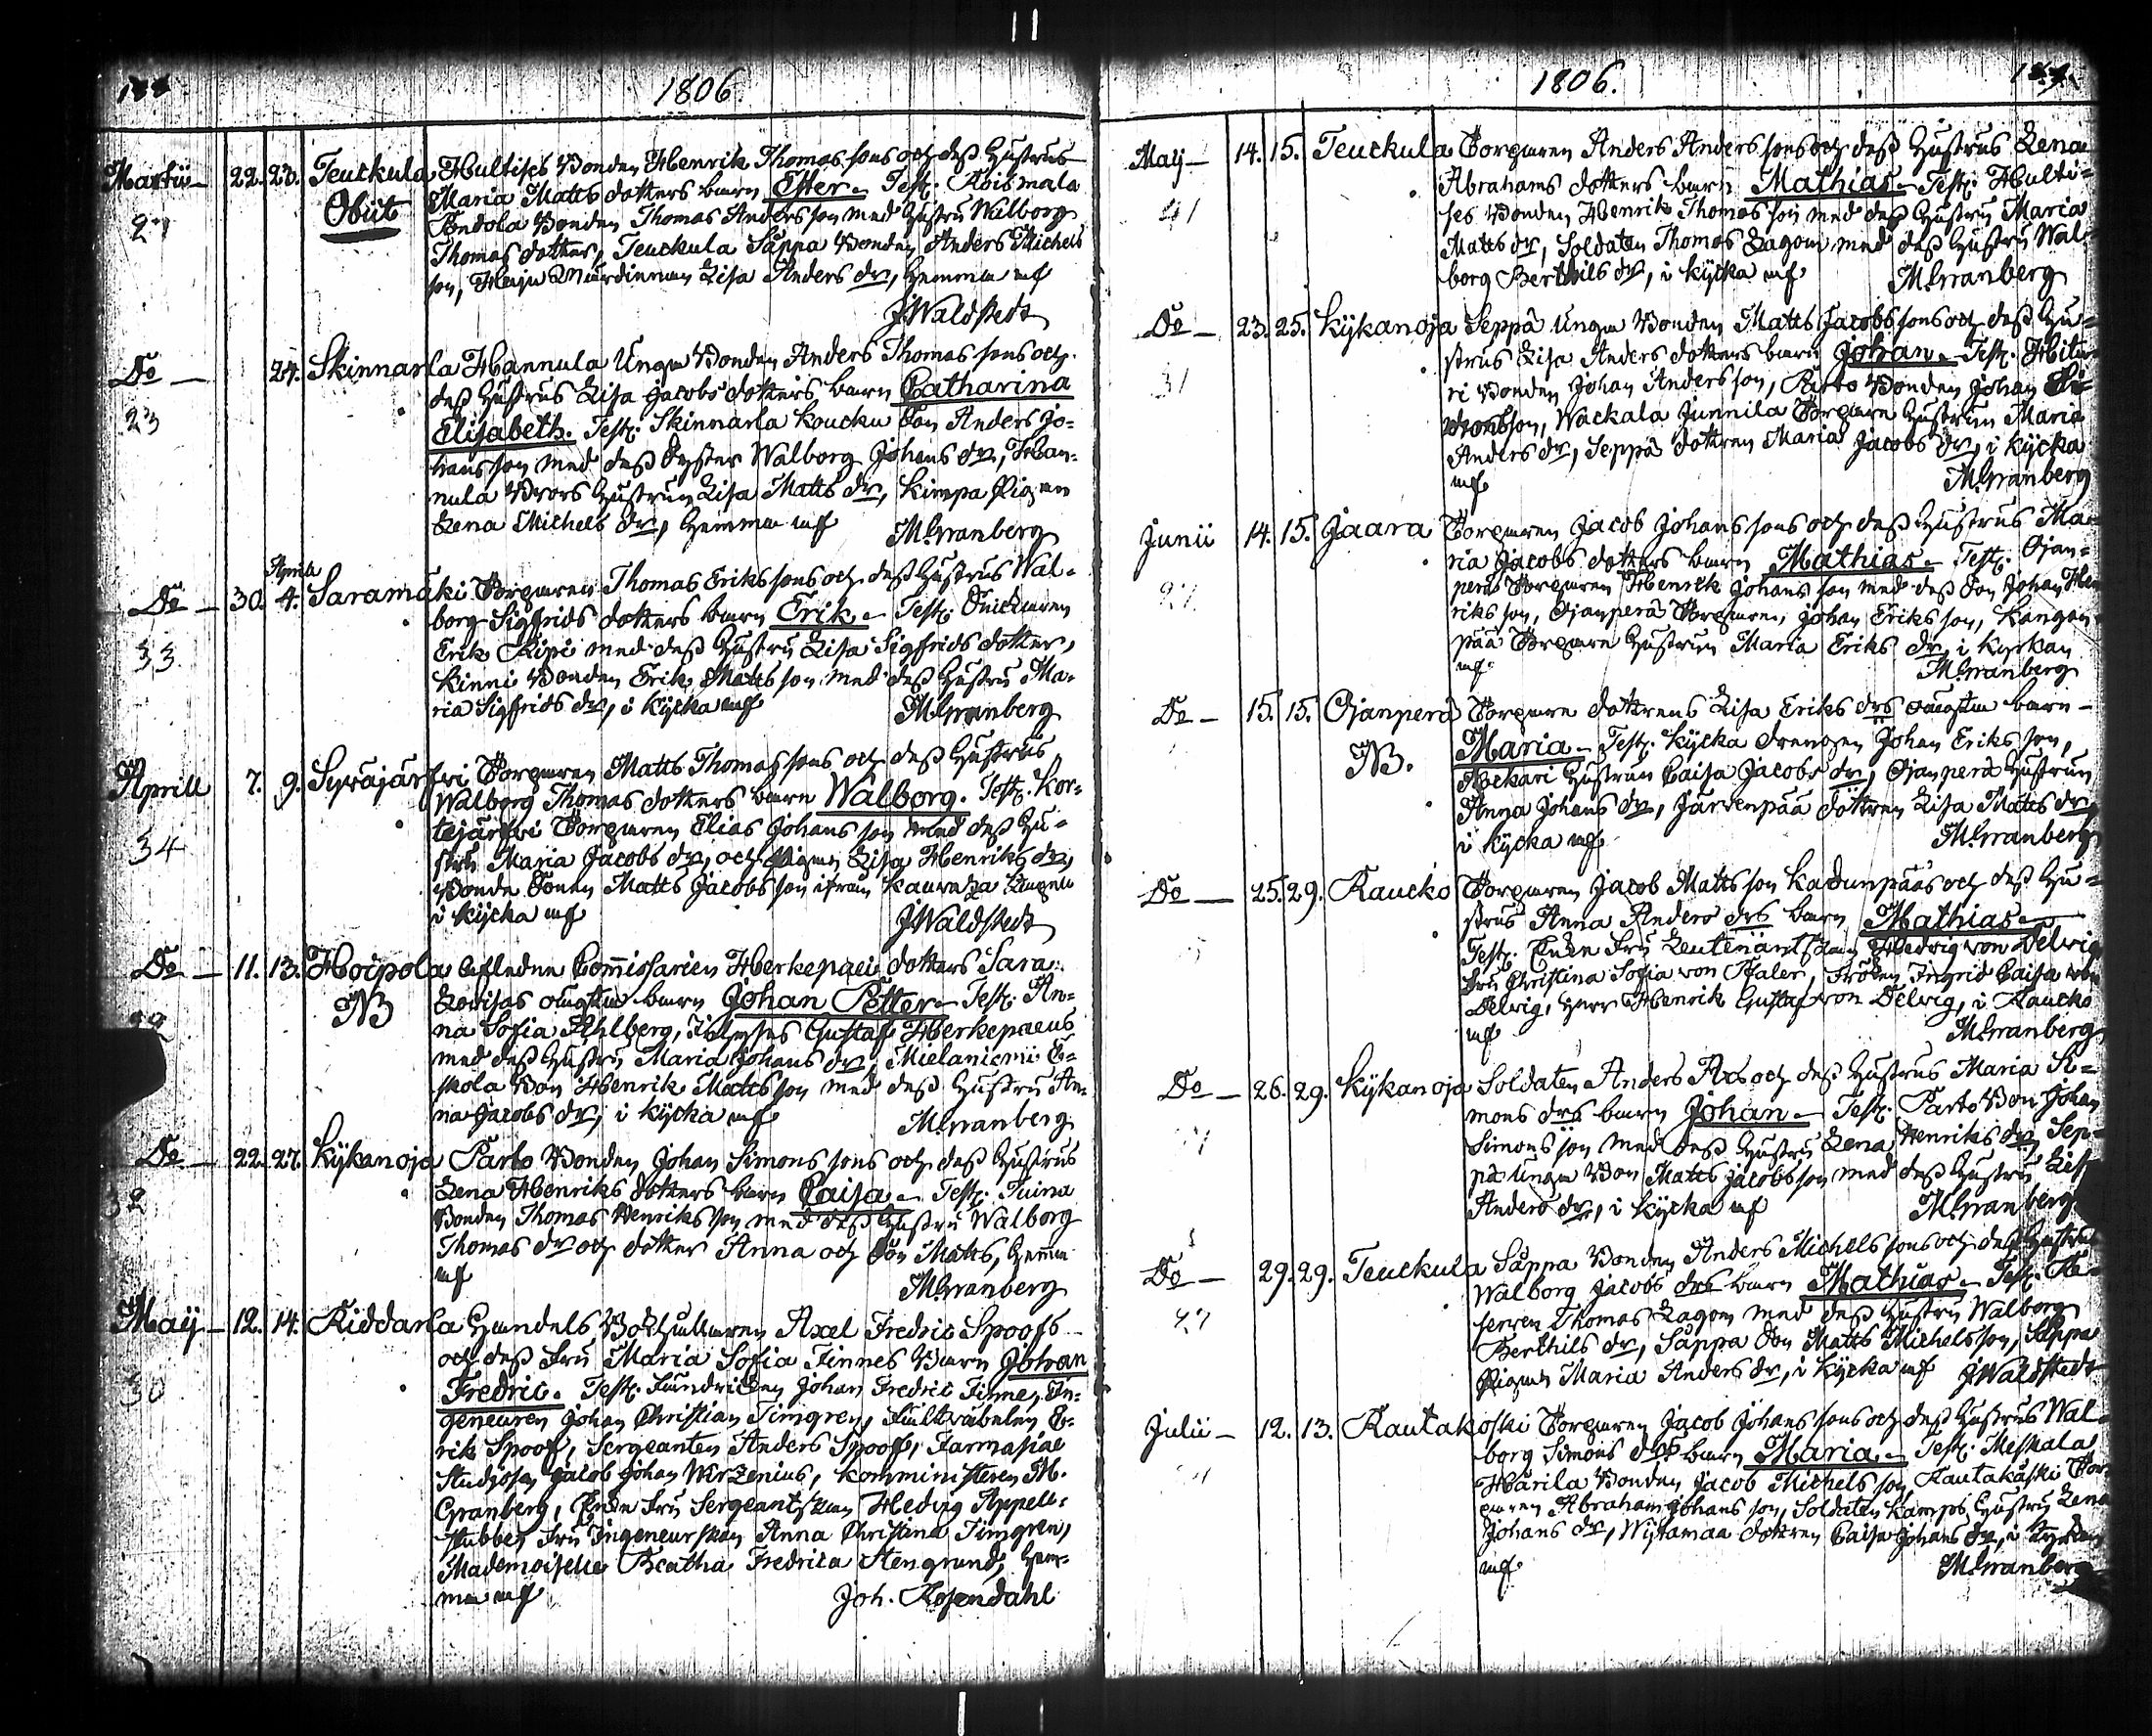 1806.
Martii 22. 23. Teuckula Hultises Bonden Henrik Thomas sons och dess Hustrus
27 Obiit Maria Matts dotters barn Ester. Test:
Bonden Thomas Anders son med Hustru Walborg
Thomas dotter, Teuckula Säppa Bonden Anders Michels
son, Lisa Anders dr, hemma mf
J Waldstedt
Do 24. Skinnarla Hannula Unga Bonden Anders Thomas sons och
23 dess Hustrus Lisa Jacobs dotters barn Catharina
Elisabeth. Test: Skinnarla Koucku Son Anders Jo-
hans son med dess Syster Walborg Johans dr, Han-
nula Brors Hustrun Lisa Matts dr, Kimpa Pigan
Lena Michels dr, hemma mf
M. Granberg
Aprill
Do 30. 4. Saramäki Torparen Thomas Eriks sons och dess Hustrus Wal-
33 borg Sigfrids dotters barn Erik. Test:
Erik med dess Hustru Lisa Sigfrids dotter,
Kinni Bonden Erik Matts son med dess Hustru Ma-
ria Sigfrids dr, i Kycka mf
M. Granberg
Aprill 7. 9. Syräjärfvi Torparen Matts Thomas sons och dess Hustrus
34 Walborg Thomas dotters barn Walborg. Test: Kor-
tejärfvi Torparen Elias Johans son med dess Hu-
stru Maria Jacobs dr, och Pigan Lisa Henriks dr,
Bonde Sonen Matts Jacobs son ifrån
i Kycka mf
J Waldstedt
Do 11. 13. Hoipola Afledne Commissarien Herkepaei dotters Sara
NB Lovisas oägta barn Johan Petter. Test: An-
na Sofia Ahlberg, Gustaf Herkepaeus
med dess Hustru Maria Johans dr, Mielaniemi E-
skola Bon Henrik Matts son med dess Hustru An-
na Jacobs dr, i Kycka mf
M. Granberg
Do 22. 27. Kykanoja Parto Bonden Johan Simons sons och dess Hustrus
32 Lena Henriks dotters barn Caisa. Test: Tuina
Bonden Thomas Henriks son med dess Hustru Walborg
Thomas dr och dotter Anna och Son Matts, hemma
mf
M. Granberg
Maij 12. 14. Riddarla Handels Bokhållaren Axel Fredric Spoofs
30 och dess Fru Maria Sofia Finnes Barn Johan
Fredric. Test: Fendricken Johan Fredric Finne, In-
geneuren Johan Christian Timgren, Fältväbeln E-
rik Spoof, Sergeanten Anders Spoof, Farmasiae
Studiosen Jacob Johan Wirzenius, Komministeren M.
Granberg, Enke Fru Sergeantskan Hedvig Appel-
stubbe, Fru Ingeneurskan Anna Christina Timgren,
Mademoiselle Beatha Fredrica Stengrund, hem-
ma mf
Joh. Rosendahl
1806.
May 14. 15. Teuckula Torparen Anders Anders sons och dess Hustrus Lena
Abrahams dotters barn Mathias. Test: Hulti-
ses Bonden Henrik Thomas son med dess Hustru Maria
Matts dr, Soldaten Thomas Lagom med dess Hustru Wal-
borg Berthils dr, i Kycka mf
M. Granberg
Do 23. 25. Kykanoja Seppä Unga Bonden Matts Jacobs sons och dess Hu-
31 strus Lisa Anders dotters barn Johan. Test:
Bonden Johan Anders son, Parto Bonden Johan Si-
mons son, Wackala Junnila Torpare Hustrun Maria
Anders dr, Seppä dottren Maria Jacobs dr, i Kycka
mf
M. Granberg
Junii 14. 15. Jaara Torparen Jacob Johans sons och dess Hustrus Ma-
27 ria Jacobs dotters barn Mathias. Test: Ojan-
perä Torparen Henrik Johans son med dess Son Johan Hen
riks son, Ojanperä Torparen Johan Eriks son, Kangan
pää Torpare Hustrun Maria Eriks dr, i Kyrkan
mf
M. Granberg
Do 15. 15. Ojanperä Torpare dottrens Lisa Eriks drs oäckta barn
NB. Maria. Test: Kycka drengen Johan Eriks son,
Hustrun Caisa Jacobs dr, Ojanperä Hustrun
Anna Johans dr, Järvenpää dottren Lisa Matts dr,
i Kycka mf
M. Granberg
Do 25. 29. Raucko Torparen Jacob Matts son Kadunpääs och dess Hu-
strus Anna Anders drs barn Mathias.
Test: Enke Fru Leutenantskan Hedvig von Delvig
Fru Christina Sofia von Staler, Fröken Ingrid Caisa von
Delvig, Herr Henrik Gustaf von Delvig, i Raucko
mf
M. Granberg
Do 26. 29. Kykanoja Soldaten Anders Ax och dess Hustrus Maria Si-
mons drs barn Johan. Test: Parto Bon Johan
Simons son med dess Hustru Lena Henriks dr, Sep-
pä Unga Bon Matts Jacobs son med dess Hustru Lisa
Anders dr, i Kycka mf
M. Granberg
Do 29. 29. Teuckula Säppa Bonden Anders Michels sons och dess Hustrus
27 Walborg Jacobs drs barn Mathias. Test: Re-
serven Thomas Lagom med dess Hustru Walborg
Berthils dr, Säppa Son Matts Michels son, Säppa
Pigan Maria Anders dr, i Kycka mf J Waldstedt
Julii 12. 13. Rautakoski Torparen Jacob Johans sons och dess Hustrus Wal-
borg Simons drs barn Maria. Test: Meskala
Härila Bonden Jacob Michels son, Rautakåski Tor-
paren Abraham Johans son, Soldaten Kamps Hustru Lena
Johans dr, Wijtamaa dottren Caisa Johans dr, i Kyrkan
mf
M. Granberg